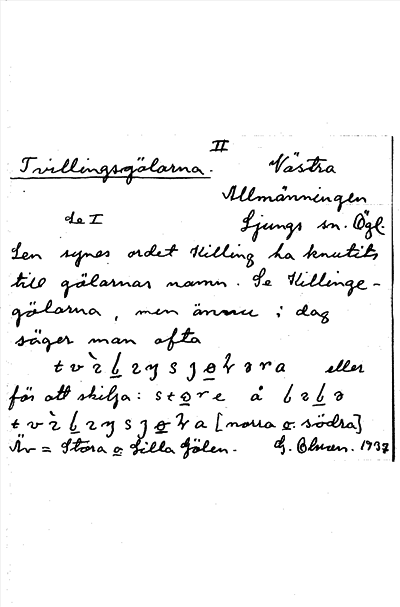 II
Tvillingsgölarna. Västra
Allmänningen
Se I Ljungs sn. Ögl.
Sen synes ordet Killing ha knutits
till gölarnas namn. Se Killinge-
gölarna, men ännu i dag
säger man ofta
eller
för att skilja: å
[norra o. södra]
Äv = Stora o. Lilla Gölen. G. Olsson. 1937